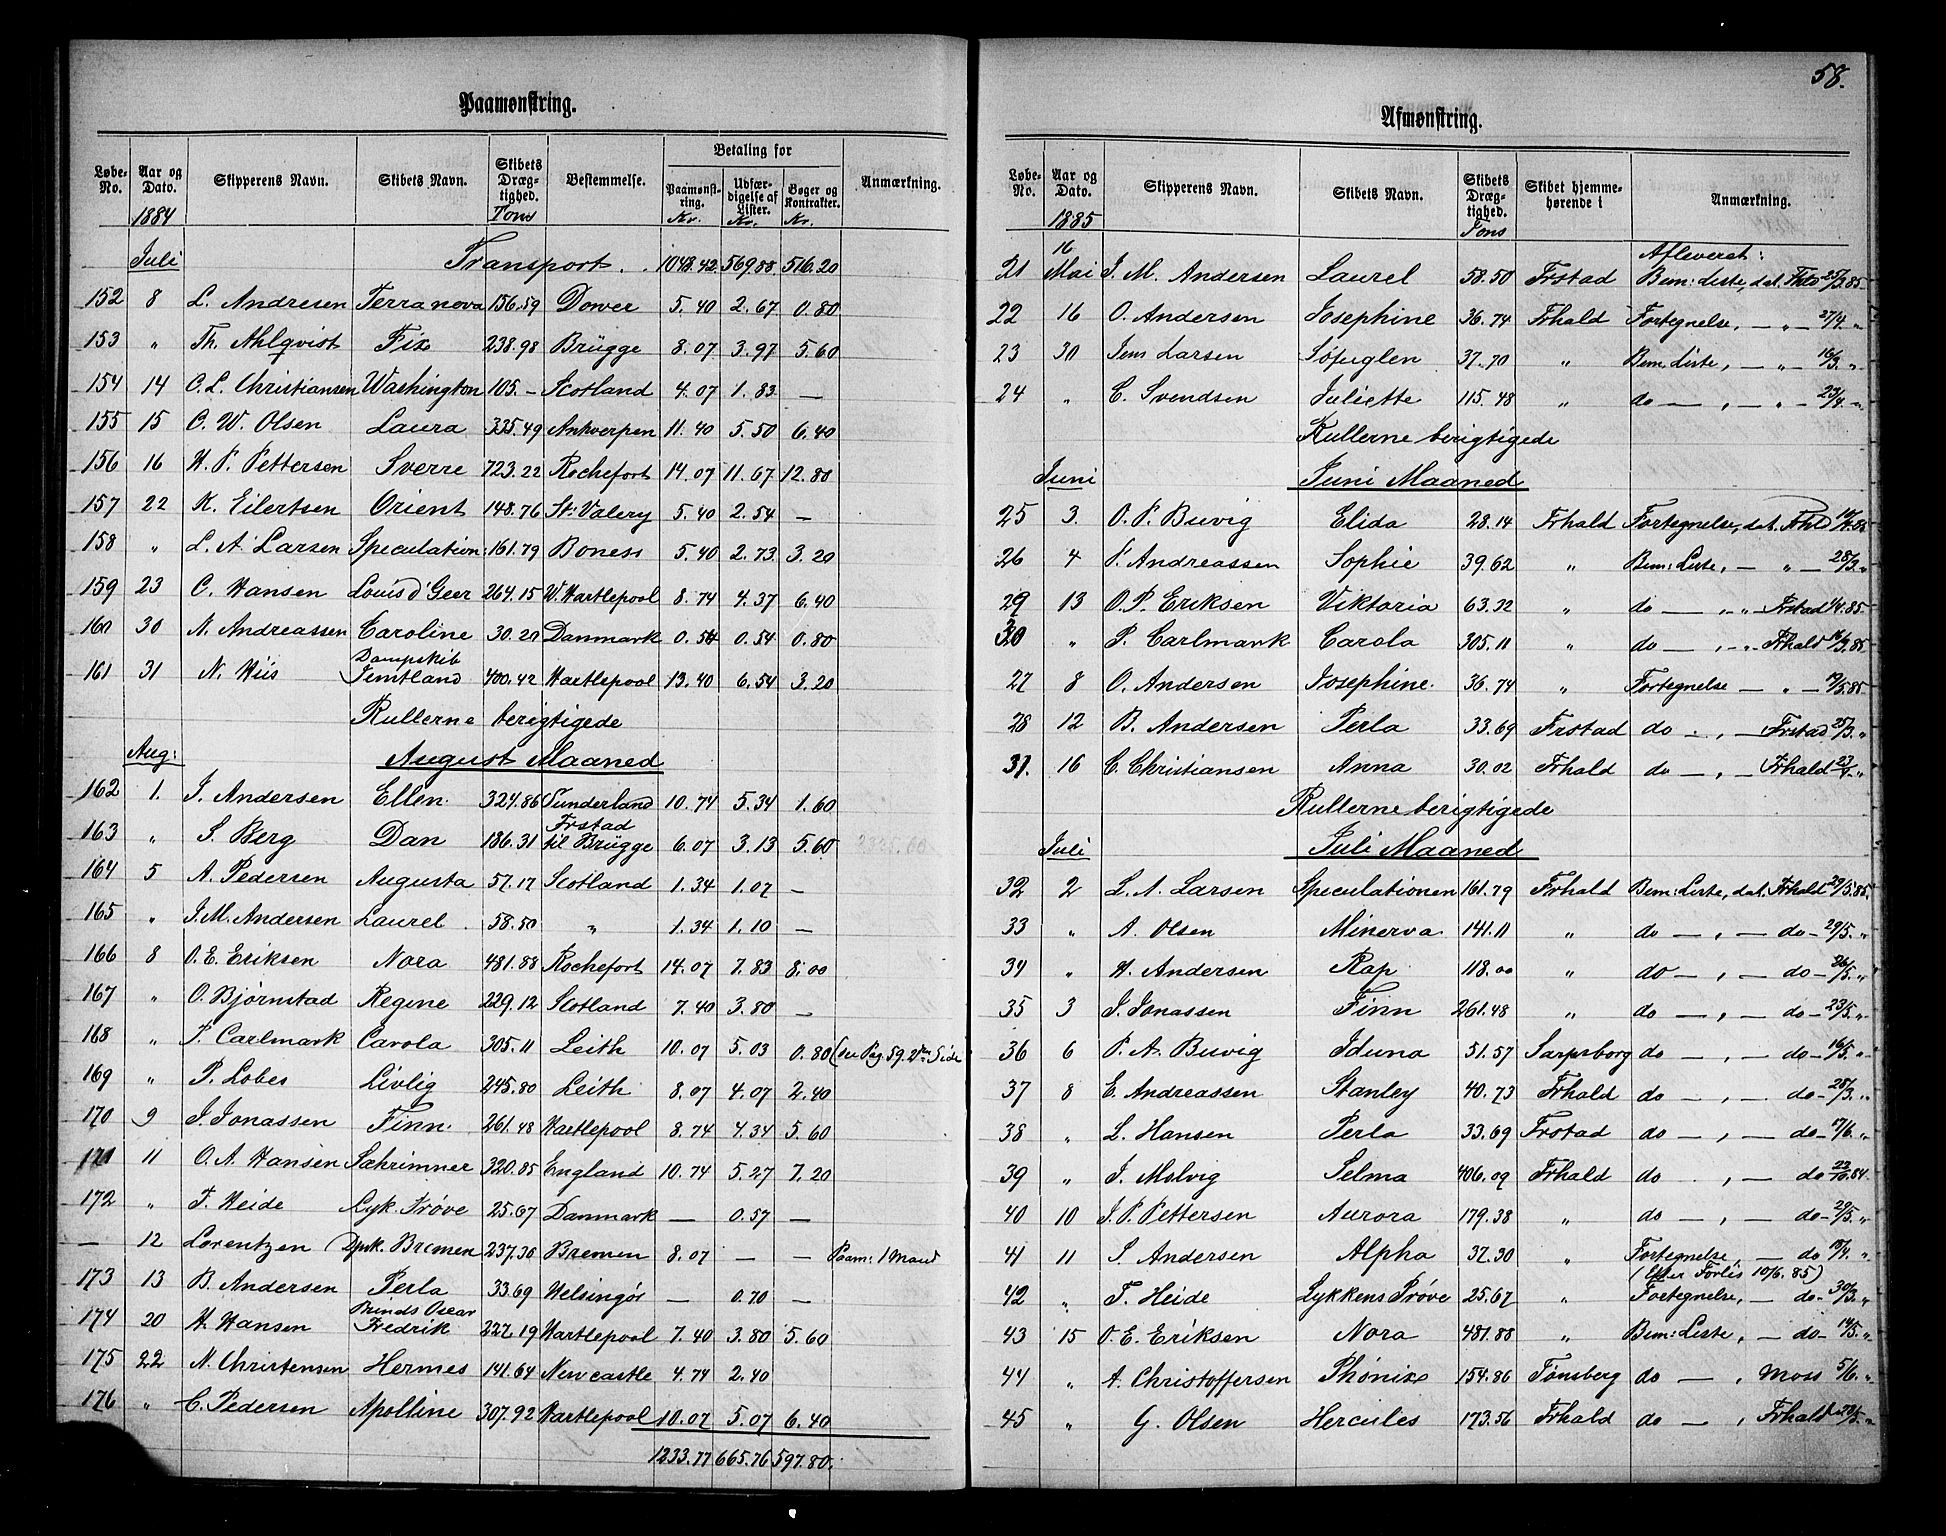 Paamønstring.
Løbe-No. Aar og Dato. Skipperens Navn. Skibets Navn. Skibets Dræg-tighed. Bestemmelse. Betaling for Paamønst-ring. Udfær-digelse af Lister. Bøger og Kontrakter. Anmærkning.
1884 Tons Kr. Kr. Kr.
Juli Transport . . 1048.42 569.88 516.20
152 8 L. Andresen Terranova 156.59 Dower 5.40 2.67 0.80
153 " Th. Ahlqvist Fix 238.98 Brügge 8.07 3.97 5.60
154 14 C. L. Christiansen Washington 105.- Scotland 4.07 1.83 —
155 15 C. W. Olsen Laura 335.49 Antwerpen 11.40 5.50 6.40
156 16 H. P. Pettersen Sverre 723.22 Rochefort 14.07 11.67 12.80
157 22 K. Eilertsen Orient 148.76 St: Valery 5.40 2.54 —
158 " L. A. Larsen Speculation: 161.79 Boness 5.40 2.73 3.20
159 23 C. Hansen Louis d'Geer 264.15 W. Hartlepool 8.74 4.37 6.40
160 30 N. Andreassen Caroline 30.20 Danmark 0.54 0.54 0.80
161 31 N. Hiis Dampskib Jemtland 400.42 Hartlepool 13.40 6.54 3.20
Rullerne berigtigede
Aug: August Maaned
162 1. J. Andersen Ellen. 324.86 Sunderland 10.74 5.34 1.60
163 " S. Berg Dan 186.31 Frstad til Brügge 6.07 3.13 5.60
164 5 A. Pedersen Augusta 57.17 Scotland 1.34 1.07 —
165 " J. M. Andersen Laurel. 58.50 " 1.34 1.10 —
166 8 O. E. Eriksen Nora 481.88 Rochefort 14.07 7.83 8.00
167 " O. Bjørnstad Regine 229.12 Scotland 7.40 3.80 —
168 " P. Carlmark Carola 305.11 Leith 10.07 5.03 0.80 (see Pag 59. 2den Side
169 " P. Lobes Livlig 245.80 Leith 8.07 4.07 2.40
170 9 J. Jonassen Finn. 261.48 Hartlepool 8.74 4.34 5.60
171 11 O. A. Hansen Sæhrimner 320.85 England 10.74 5.27 7.20
172 " T. Heide Lyk. Prøve 25.67 Danmark — 0.57 —
— 12 Lorentzen Dpsk. Bremen 237.36 Bremen 8.07 — — Paam: 1 Mand
173 13 B. Andersen Perla 33.69 Helsingör — 0.70 —
174 20 H. Hansen Prinds Oscar Fredrik 227.19 Hartlepool 7.40 3.80 5.60
175 22 N. Christensen Hermes 141.64 Newcastle 4.74 2.40
176 " C. Pedersen Apolline 307.92 Hartlepool 10.07 5.07 6.40
1233.77 665.76 597.80.
58.
Afmønstring.
Løbe-No. Aar og Dato. Skipperens Navn. Skibets Navn. Skibets Dræg-tighed. Skibet hjemme-hørende i Anmærkning.
1885 Tons
Afleveret:
21 16 Mai J. M. Andersen Laurel 58.50 Frstad Bem: Liste, dat. Fhld 25/3.85.
22 16 O. Andersen Josephine 36.74 Frhald Fortegnelse, — " — 27/4. "
23 30 Jens Larsen Søfuglen 37.70 " Bem. Liste, — " — 16/3. "
24 " C. Svendsen Juliette 115.48 " do — , — " — 23/4. "
Rullerne berigtigede
Juni Juni Maaned
25 3. O. P. Buvig Elida 28.14 Frhald Fortegnelse, dat. Frhld
26 4 P. Andreassen Sophie 39.62 " Bem: Liste, — " — 28/3. "
29 13 O. P. Eriksen Viktoria 63.32 " do — , - " Frstad 1/4.85.
30 " P. Carlmark Carola 305.11 " do — , - " Frhald 16/3.85.
27 8 O. Andersen Josephine. 36.74 " Fortegnelse — " — 19/5.85
28 12 B. Andersen Perla 33.69 Frstad do . , — Frstad 25/3. "
31. 16 C. Christiansen Anna 30.02 Frhald do — , — Frhald 23/4. "
Rullerne berigtigede
Juli Juli Maaned
32 2 L. A. Larsen Speculationen 161.79 Frhald Bem: Liste, dat. Frhald 29/5.85.
33 " A. Olsen Minerva 141.11 " do — , — do - 29/5. "
34 " H. Andersen Rap 118.00 " do — , — do - 26/5. "
35 3 J. Jonassen Finn 261.48 " do — , — do - 23/5. "
36 6 P. A. Buvig Iduna 51.57 Sarpsborg do — , — do - 16/5. "
37 8 E. Andreassen Stanley 40.73 Frhald do — , — do - 28/3. "
38 " L. Hansen Perla 33.69 Frstad do — , — do - 17/6. "
39 " J. Molvig Selma 406.09 Frhald do . , — do 22/10.84.
40 10 J. P. Pettersen Aurora 179.38 " do — , — do - 29/5. "
41 11 S. Andersen Alpha 37.30 " Fortegnelse, — do 15/4. "
(Efter Forlis 10/6.85)
42 " T. Heide Lykkens Prøve 25.67 " Fortegnelse, — do - 30/3. "
43 15 O. E. Eriksen Nora 481.88 " Bem: Liste, — do - 14/5. "
44 " A. Christoffersen Phønix 154.86 Tønsberg do — , Moss 5/6. "
45 " G. Olsen Hercules 173.56 Frhald do — , Frhald 22/5. "